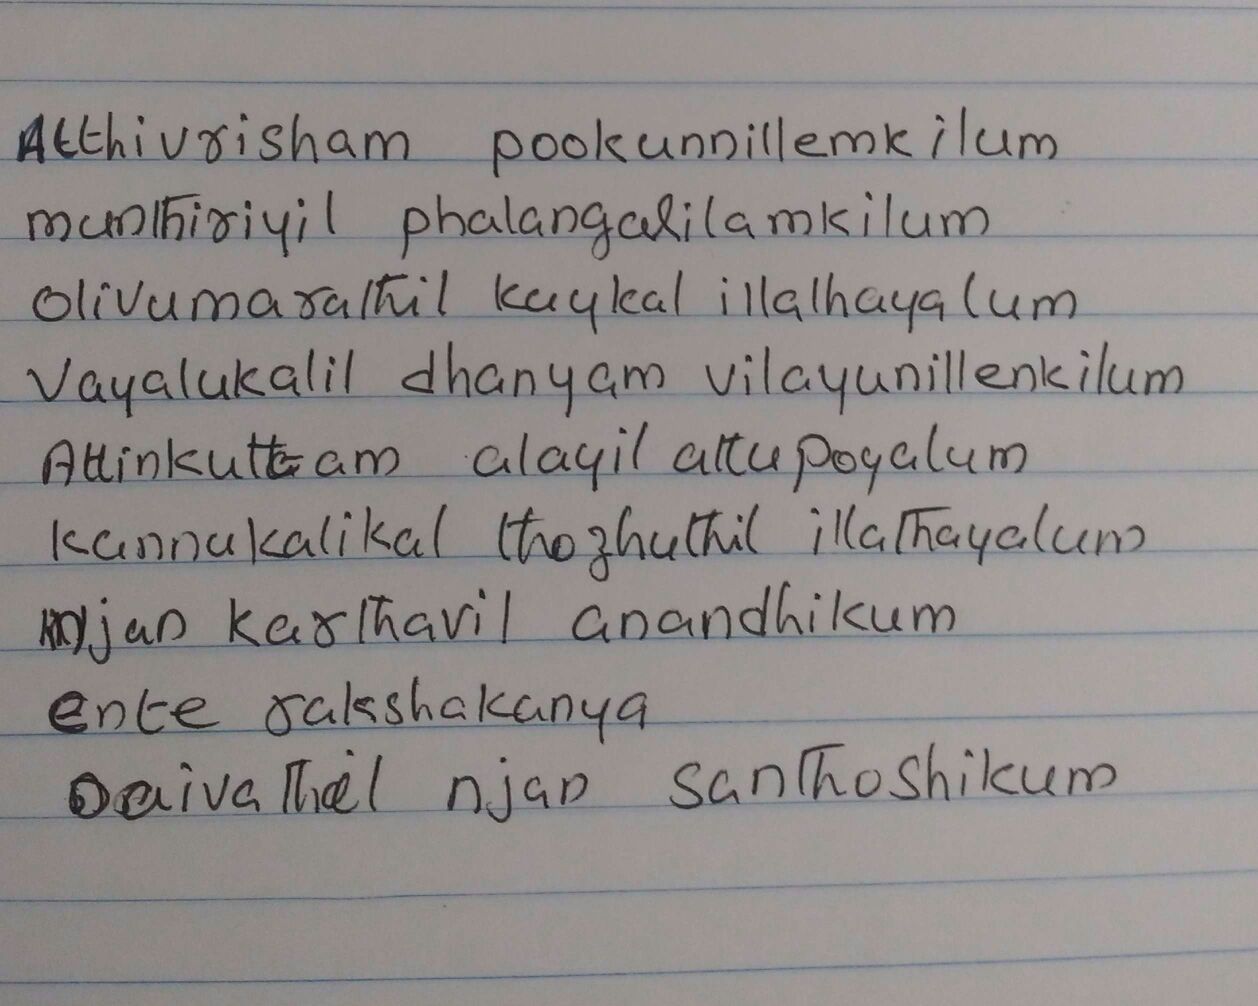 Atthivrisham pookunnillemkilum
munthiriyil phalangalilamkilum
Olivumarathil kaykal illathayalum
Vayalukalil dhanyam vilayunillenkilum
Attinkuttam alayil attupoyalum
kannukalikal thozhuthil illathayalum
njan karthavil anandhikum
ente rakshakanya
Daivathil njan santhoshikum